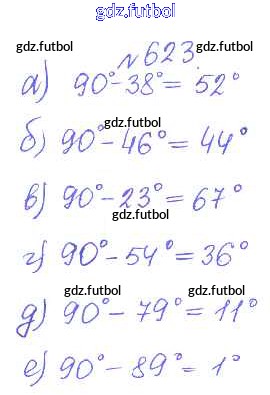 gdz.futbol
gdz.futbol №623. gdz.futbol
а) 90°-38°= 52°
gdz.futbol
б) 90°-46°= 44°
в) 90°-23°= 67°
gdz.futbol
г) 90°-54°=36°
gdz.futbol gdz.futbol
д) 90°-79°=11°
е) 90°-89°=1°